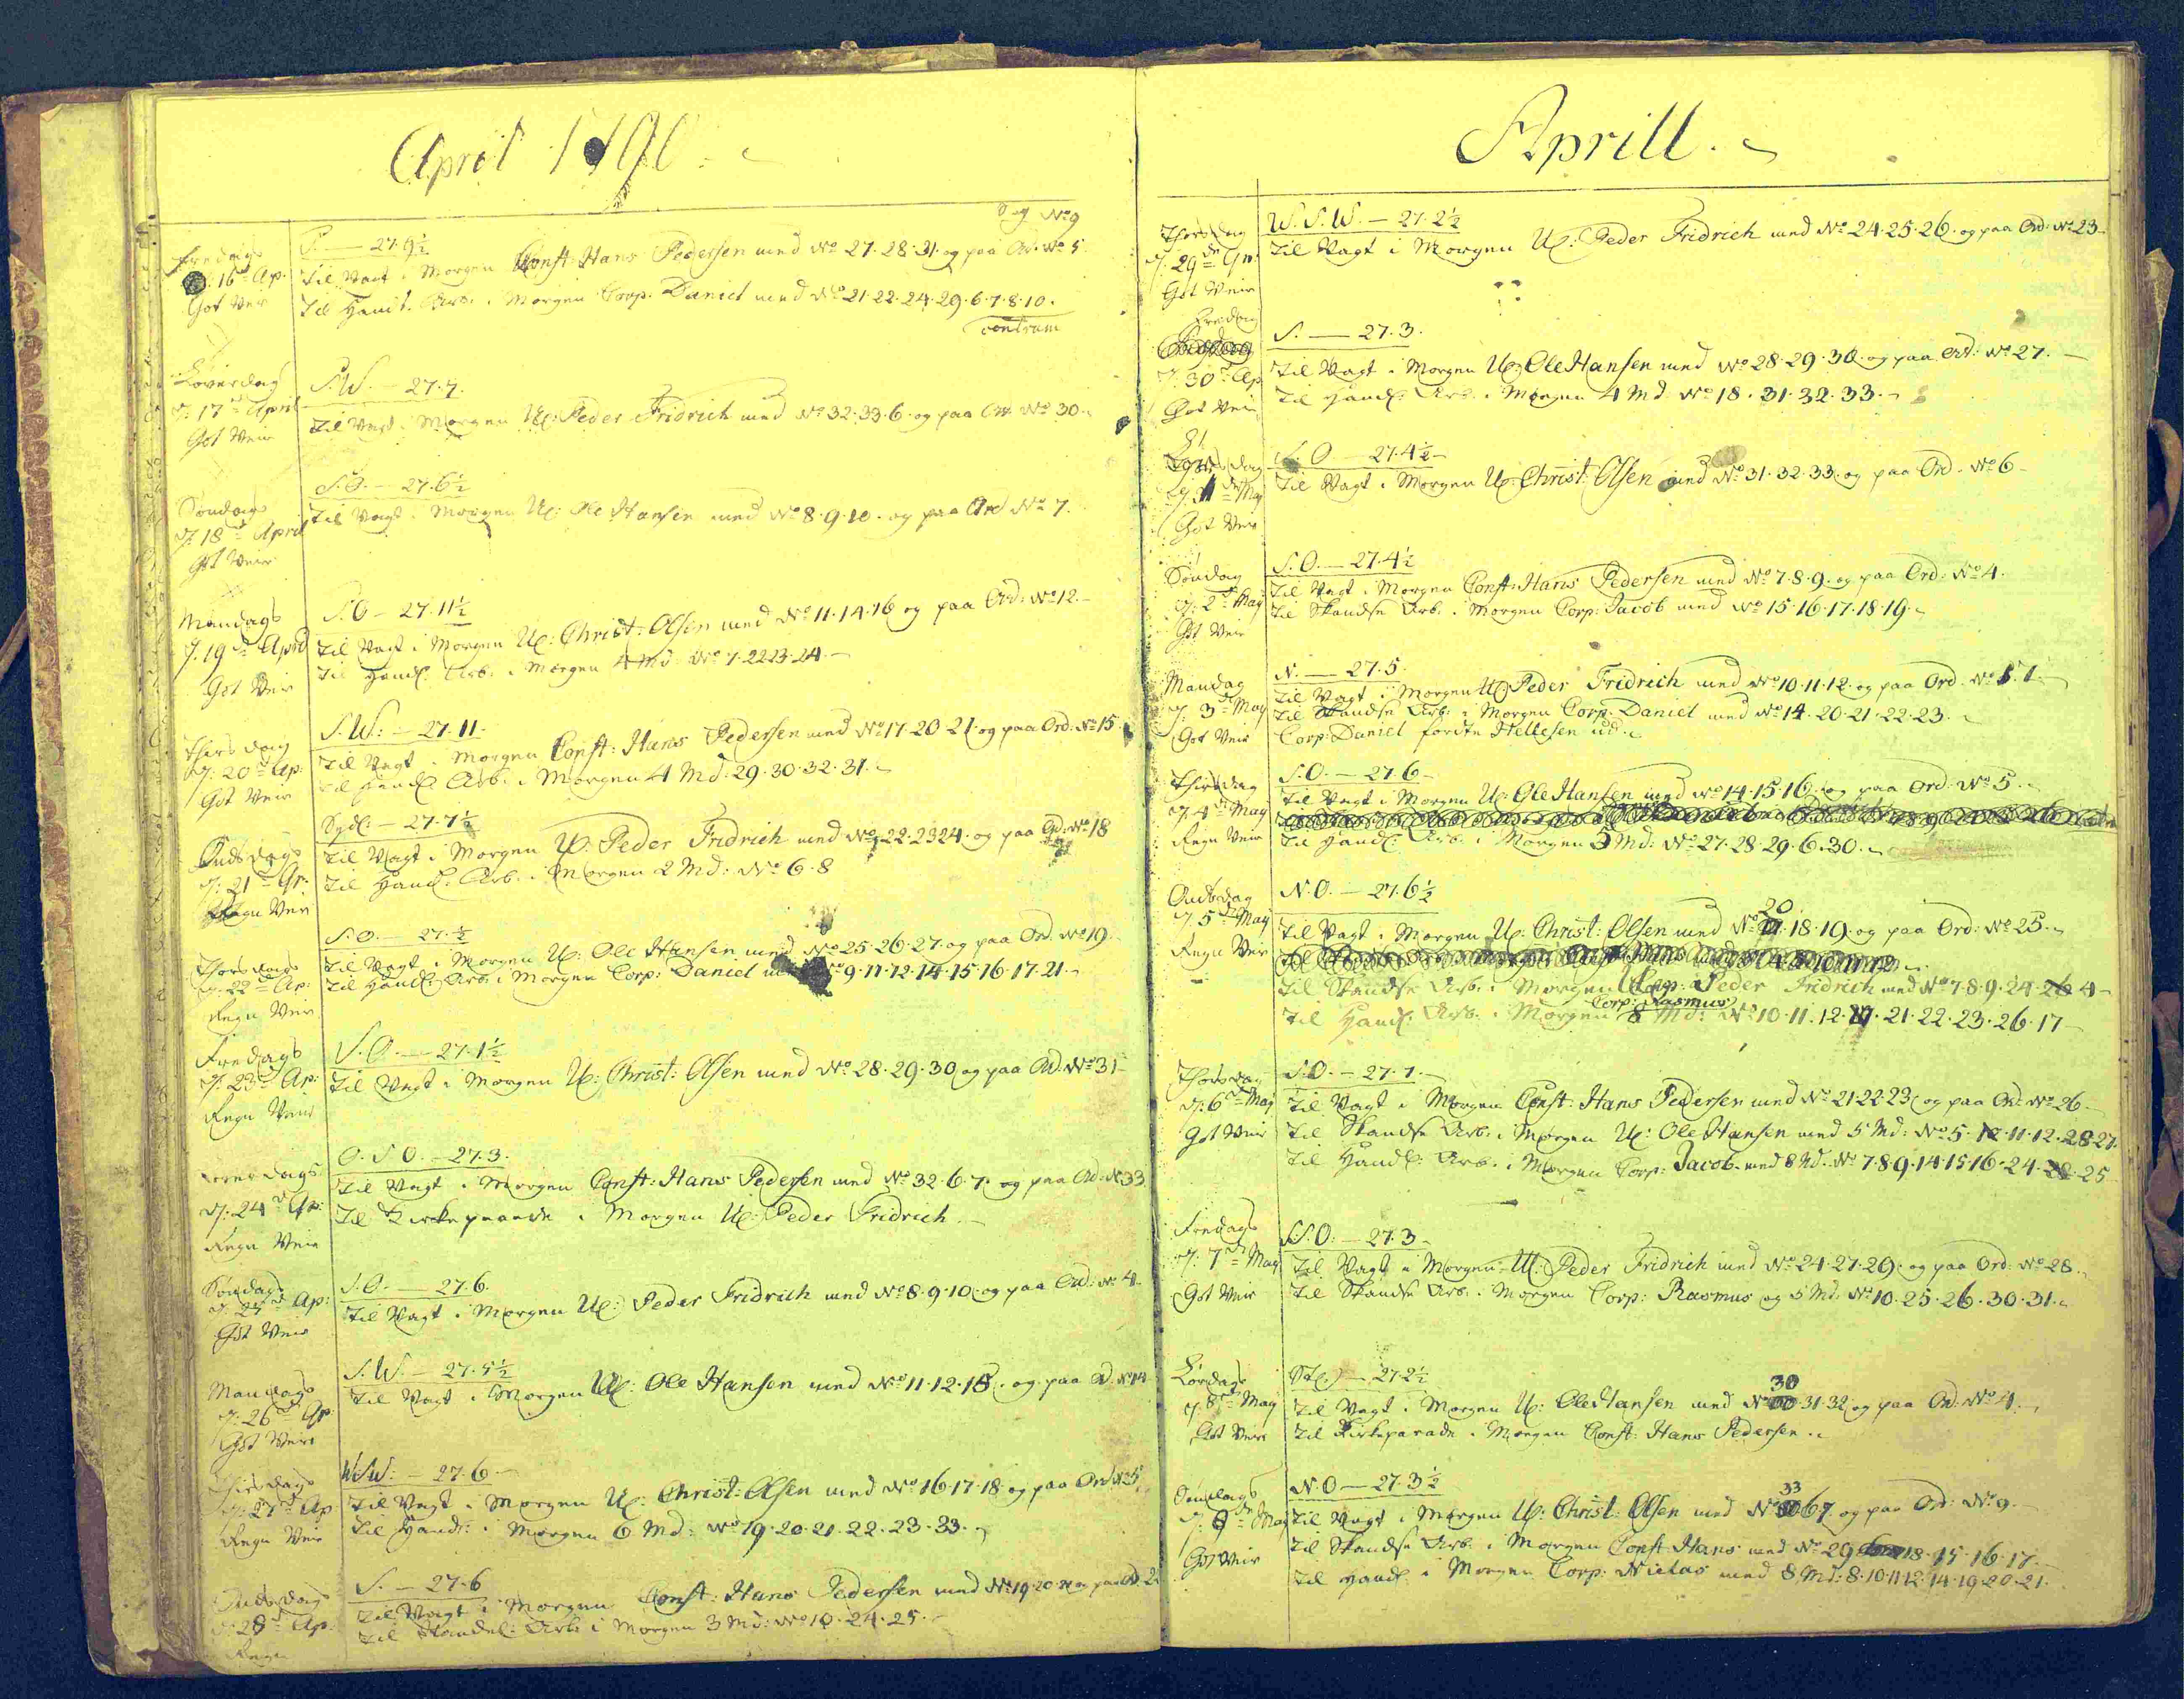 April 1790
Fredags
16de Ap.
Got Veir
S. — 27.9½
Til Vagt i Morgen Const: Hans Pedersen med No 27.28.31. og paa Ord. No 5.
Til Handt. Arb. i Morgen Corp. Daniel med No 21.22.24.29.6.7.8.10.
Løverdag
d: 17de April
Got Veir
S.W. — 27.7.
Til Vagt i Morgen U: Peder Fridrich med No 32.33.6. og paa Ord. No 30.
Søndags
d: 18de April
Got Veir
S.O. — 27.6½
Til Vagt i Morgen U: Ole Hansen med No 8.9.10. og paa Ord No 7.
Mandags
d. 19de April
Got Veir
S.O — 27.11½
Til Vagt i Morgen U: Christ: Olsen med No 11.14.16 og paa Ord: No 12.
Til Handl: Arb. i Morgen 4 Md: No 7.22.23.24.
Thirsdag
d: 20de Ap:
Got Veir
S.W: — 27.11.
Til Vagt i Morgen Const: Hans Pedersen med No 17.20.21. og paa Ord: No 15
Til Handl: Arb. i Morgen 4 Md: 29.30.32.31.
Onds dags
d: 21de Ap:
Regn Veir
Sydl: — 27.7½
Til Vagt i Morgen U: Peder Fridrich med No 22.23 24. og paa Ord: No 18
Til Handl: Arb. i Morgen 2 Md: No 6.8
Thorsdags
d: 22de Ap:
Regn Veir
S.O. — 27.½
Til Vagt i Morgen U: Ole Hansen med No 25.26.27. og paa Ord. No 19.
Til Handl: Arb. i Morgen Corp: Daniel No 9.11.12.14.15.16.17.21.
Fredags
d: 23de Ap:
Regn Veir
S.O. — 27.1½
Til Vagt i Morgen U: Christ: Olsen med No 28.29.30. og paa Od. No 31
d: 24de Ap:
Regn Veir
O.S O. — 27.3.
Til Vagt i Morgen Const: Hans Pedersen med No 32.6.7. og paa Od: No 33
Til Kirkeparade i Morgen U: Peder Fridrich.
Søndags
d: 25de Ap:
Got Veir
S.O. — 27.6.
Til Vagt i Morgen U: Peder Fridrich med No 8.9.10. og paa Ord: No 4.
Mandags
d: 26de Ap
Got Veir
S.W. — 27.5½
Til Vagt i Morgen U: Ole Hansen med No 11.12.15. og paa Od. No 14
Thirsdags
d: 27de Ap
Regn Veir
W.S.W: — 27.6 —
Til Vagt i Morgen U: Christ: Olsen med No 16.17.18. og paa Ord No 5
Til Handl: i Morgen 6 Md: No 19.20.21.22.23.33.
Onds dags
d: 28de Ap:
Regn
S. — 27.6
Til Vagt i Morgen Const: Hans Pedersen med No 19.20.
Til Handl: Arb. i Morgen 3 Md: No 10.24.25.
Aprill.
Thorsdag
d. 29de Ap:
Got Veir
W.S.W. — 27.2½
Til Vagt i Morgen U: Peder Fridrich med No 24.25.26. og paa Ord: No 23
Fredag
d: 30de Ap
Got Veir
S. — 27.3.
Til Vagt i Morgen U: Ole Hansen med No 28.29.30. og paa Ord: No 27.
Til Handl: Arb. i Morgen 4 Md No 18.31.32.33.
d: 1de May
Got Veir
S. O — 27.4½
Til Vagt i Morgen U: Christ: Olsen med No 31.32.33. og paa Ord. No 6
Søndag
d: 2de May
Got Veir
S.O. — 27.4½
Til Vagt i Morgen Const: Hans Pedersen med No 7.8.9. og paa Ord: No 4.
Til Skandse Arb. i Morgen Corp: Jacob med No 15.16.17.18.19.
Mandag
d: 3de May
Got Veir
N. — 27.5.
Til Vagt i Morgen U: Peder Fridrich med No 10.11.12. og paa Ord. No
Til Skandse Arb. i Morgen Corp: Daniel med No 14.20.21.22.23.
Corp: Daniel fordte Hellesen ud.
Thirsdag
d: 4de May
Regn Veir
S.O. — 27.6
Til Vagt i Morgen U: Ole Hansen med No 14.15.16. og paa Ord: No 5.
Til Handl: Arb. i Morgen 5 Md: No 27.28.29.6.30.
Ondsdag
d: 5de May
Regn Veir
N.O. — 27.6½
Til Vagt i Morgen U: Christ: Olsen med No 20.18.19. og paa Ord: No 25.
Til Skandse Arb. i Morgen Peder Fridrich med No 7.8.9.24. 4
Corp: Rasmus
Til Handl: Arb. i Morgen 8 Md: No 10.11.12. 21.22.23.26.17
Thorsdag
d: 6de May
Got Veir
S.O. — 27.7.
Til Vagt i Morgen Const: Hans Pedersen med No 21.22.23. og paa Ord: No 26.
Til Skandse Arb. i Morgen U: Ole Hansen med 5 Md: No 5. 11.12.28.27.
Til Handl: Arb. i Morgen Corp: Jacob med 8 Md. No 7.8.9.14.15.16.24. 25
Fredags
d: 7de May
Got Veir
S.S.O: — 27.3
Til Vagt i Morgen U: Peder Fridrich med No 24.27.29. og paa Ord: No 28.
Til Skandse Arb. i Morgen Corp: Rasmus og 5 Md. No 10.25.26.30.31.
Lørdags
d: 8de May
Got Veir
Stl: — 27.2½
Til Vagt i Morgen U: Ole Hansen med No 30.31.32. og paa Od: No 4.
Til Kirkeparade i Morgen Const: Hans Pedersen.
Søndags
d: 9de May
Got Veir
N.O — 27.3½
Til Vagt i Morgen U: Christ: Olsen med No 33 6 7. og paa Ord: No 9.
Til Skandse Arb. i Morgen Const Hans med No 29 18.15.16.17.
Til Handl: i Morgen Corp: Niclas med 8 Md: 8.10.11.12.14.19.20.21.